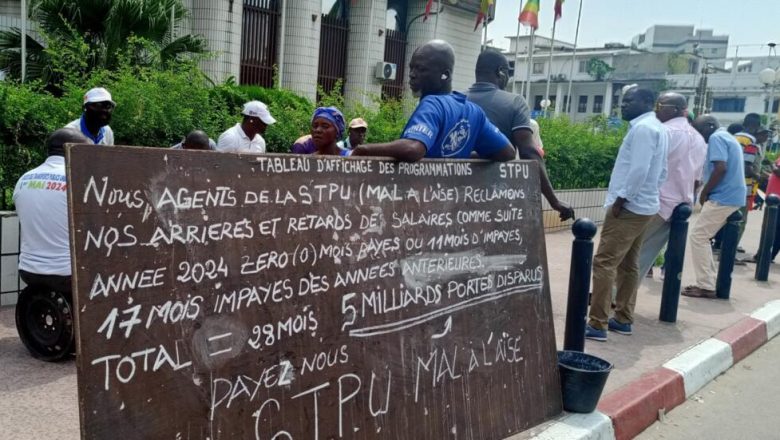 TABLEAU D'AFFICHAGE DES PROGRAMMATIONS STPU
NOUS, AGENTS DE LA STPU (MAL A L'AÏSE) RECLAMONS
NOS ARRIERES ET RETARDS DES SALAIRES COMME SUITE
ANNEE 2024 ZERO (0) MOIS PAYES OU 11 MOIS D'IMPAYES,
17 MOIS IMPAYES DES ANNÉES ANTERIEURES
TOTAL = 28 MOIS. 5 MILLIARDS PORTES DISPARUS
PAYEZ NOUS
STPU MAL A L'AÏSE
1er MAI 2024